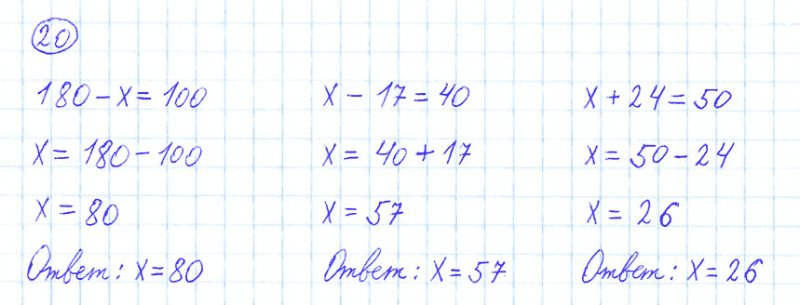 20
180 - x = 100
x = 180 - 100
x = 80
Ответ: x = 80
x - 17 = 40
x = 40 + 17
x = 57
Ответ: x = 57
x + 24 = 50
x = 50 - 24
x = 26
Ответ: x = 26